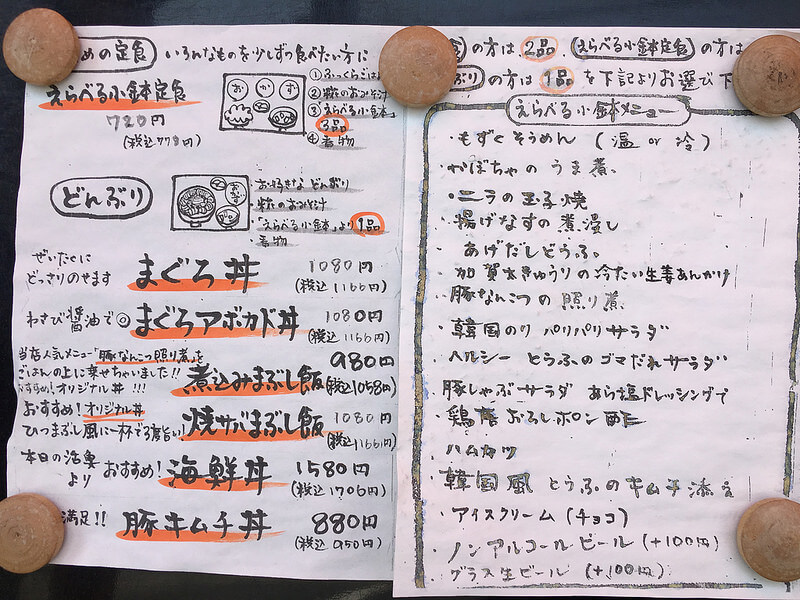 めの定食 いろんなものを少しずつ食べたい方に
えらべる小鉢定食
720円
(税込778円)
おかず
①ふっくらごはん
②糀のおみそ汁
③えらべる小鉢」
3品
④香物
どんぶり
・お好きな どんぶり
・糀のおみそ汁
・「えらべる小鉢」より 1品
・香物
ぜいたくに
どっさりのせます
まぐろ丼 1080円
(税込1166円)
わさび醤油で◎ まぐろアボカド丼 1080円
(税込1166円)
当店人気メニュー「豚なんこつ照り煮」を
ごはんの上に乗せちゃいました!!
おすすめ!オリジナル丼!!!
煮込みまぶし飯 980円
(税込1058円)
おすすめ!オリジナル丼
ひつまぶし風に一杯で3度旨い
焼サバまぶし飯 1080円
(税込1166円)
本日の活魚
より
おすすめ! 海鮮丼 1580円
(税込1706円)
満足!! 豚キムチ丼 880円
(税込950円)
の方は 2品 、えらべる小鉢定食 の方は
ぶり の方は 1品 を下記よりお選び下
えらべる小鉢メニュー
・もずくそうめん (温 or 冷)
・かぼちゃのうま煮
・ニラの玉子焼
・揚げなすの煮浸し
・あげだしどうふ
・加賀太きゅうりの冷たい生姜あんかけ
・豚なんこつの照り煮
・韓国のり パリパリサラダ
・ヘルシー とうふのゴマだれサラダ
・豚しゃぶサラダ あら塩ドレッシングで
・鶏 おろしポン酢
・ハムカツ
・韓国風 とうふのキムチ添え
・アイスクリーム (チョコ)
・ノンアルコールビール (+100円)
・グラス生ビール (+100円)